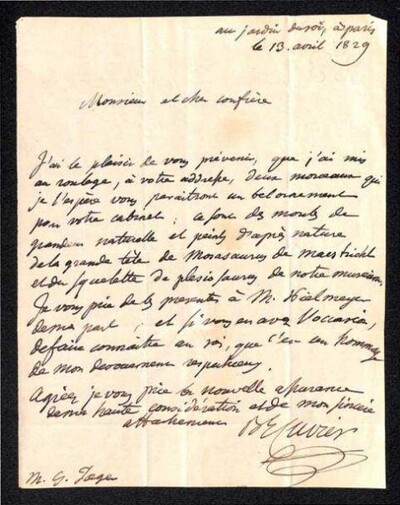 au jardin du roi, à paris
le 13 avril 1829
Monsieur et cher confrère
J'ai le plaisir de vous prévenir, que j'ai mis
au roulage, à votre addresse, deux morceaux qui
je l'espère vous paraitront un bel ornement
pour votre cabinet: ce sont des moules de
grandeur naturelle et peints d'après nature
de la grande tête de Mosasaurus de maestricht
et du squelette de plesiosaurus de notre museum,
Je vous prie de les presenter à M. Kielmeyer
de ma part; et si vous en avez l'occasion,
de faire connaitre au roi, que c'est un hommage
de mon devouement respectueux.
Agréez je vous prie la nouvelle assurance
de ma haute considération et de mon sincère
attachement
Cuvier
M. G. Jaeger